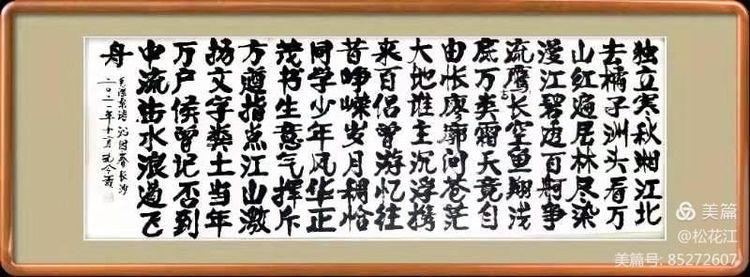 独立寒秋湘江北
去橘子洲头看万
山红遍层林尽染
漫江碧透百舸争
流鹰击长空鱼翔浅
底万类霜天竞自
由怅廖廓问苍茫
大地谁主沉浮携
来百侣曾游忆往
昔峥嵘岁月稠恰
同学少年风华正
茂书生意气挥斥
方遒指点江山激
扬文字粪土当年
万户侯曾记否到
中流击水浪遏飞
舟
毛泽东诗沁园春长沙
二〇二一年十二月
美篇
@松花江
美篇号: 85272607